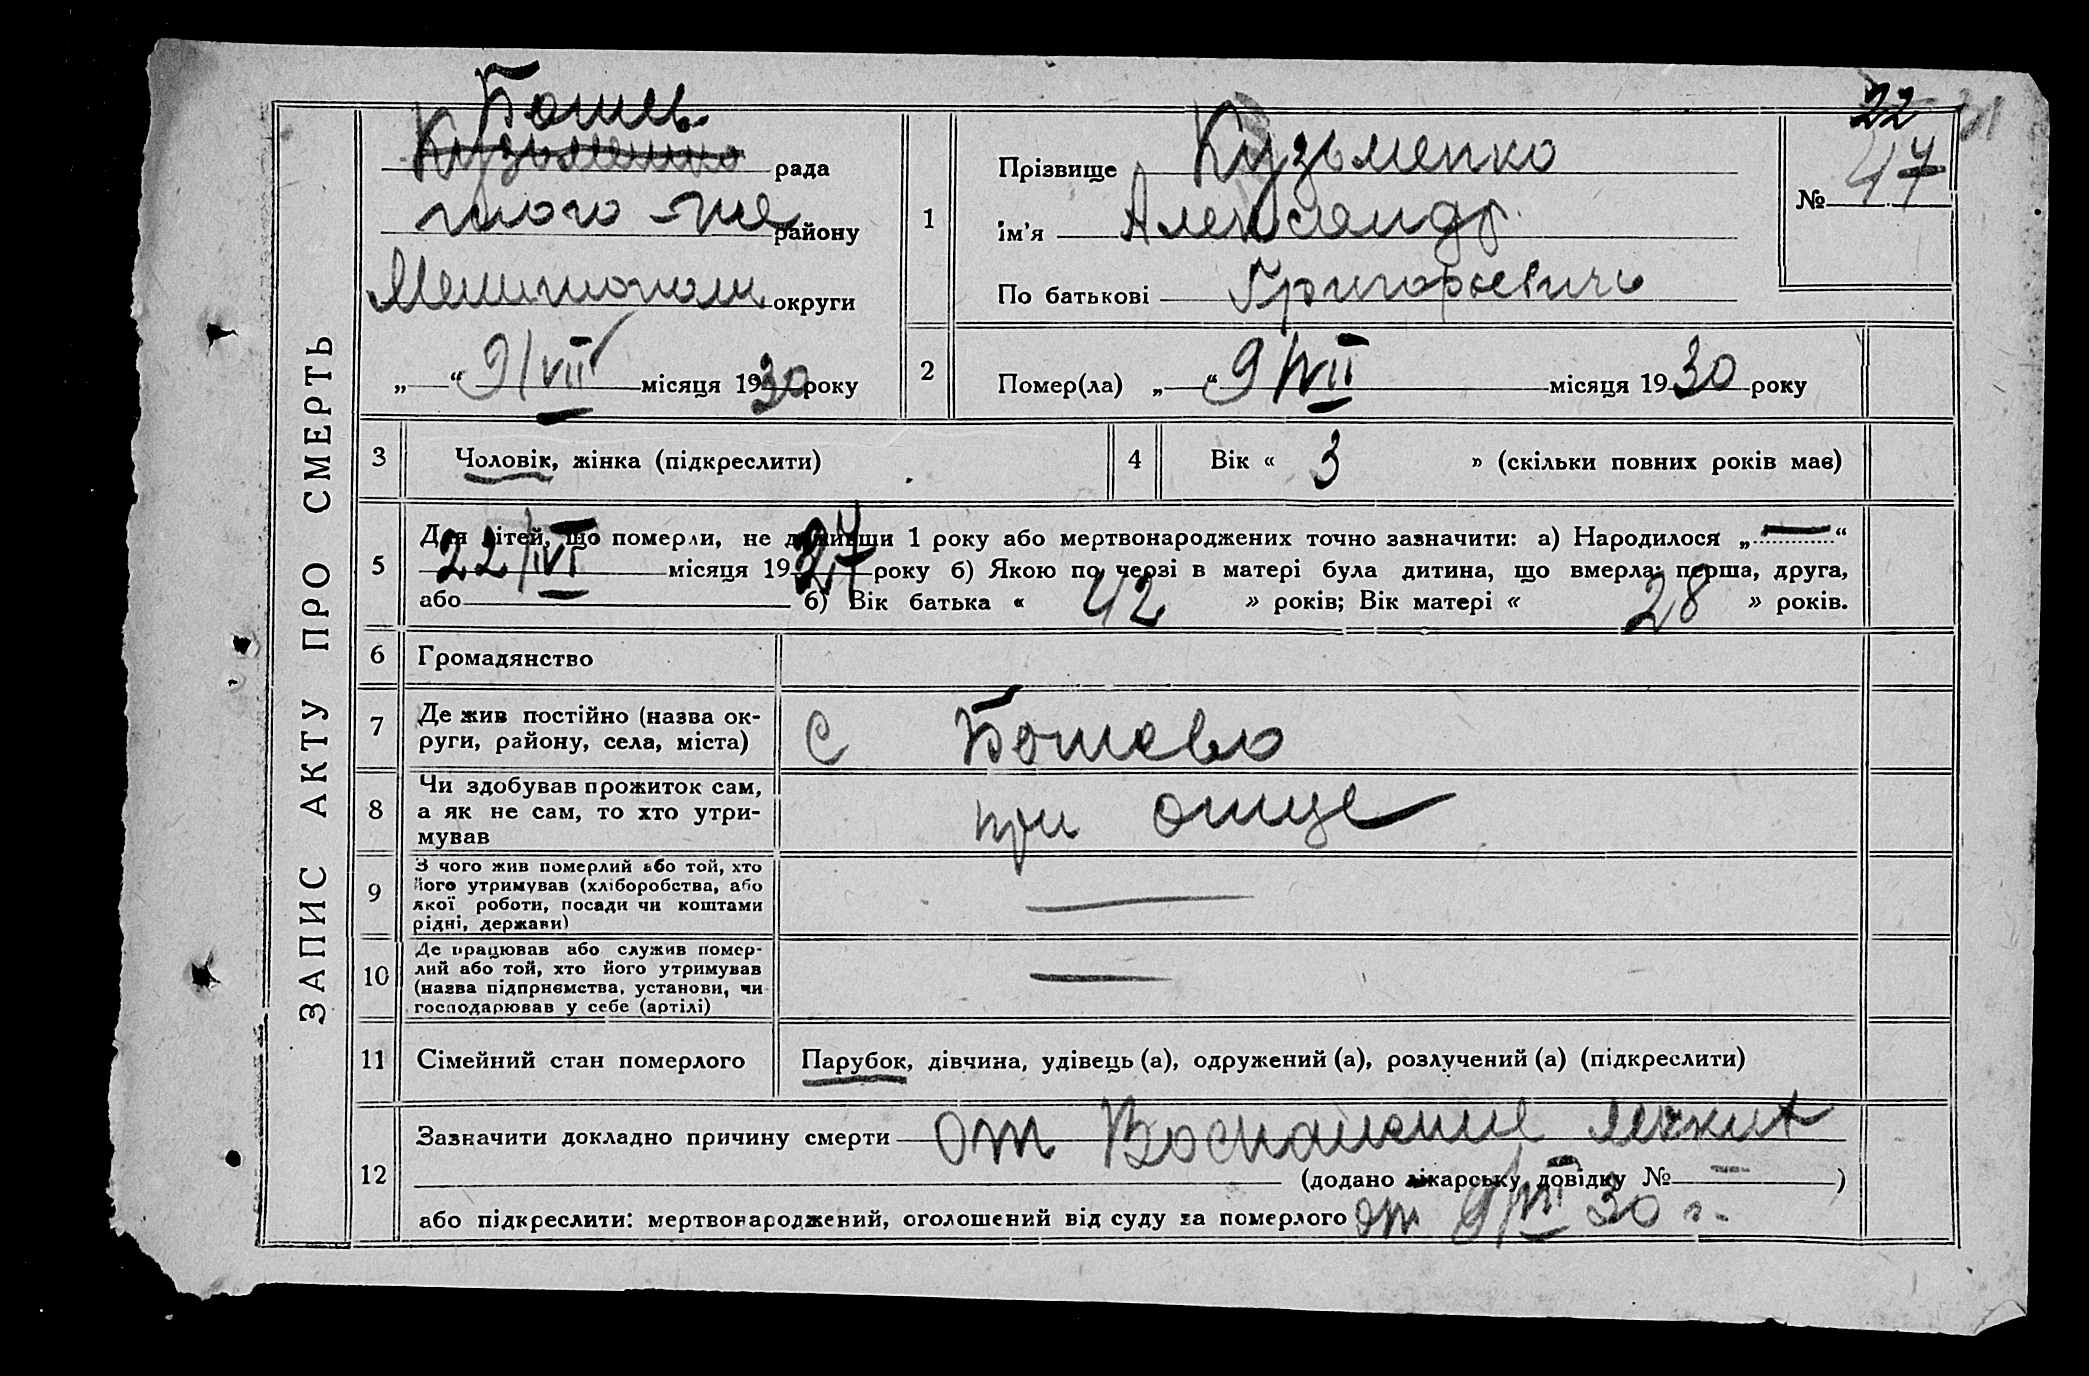 ЗАПИС АКТУ ПРО СМЕРТЬ
Ботев.
Кузьменко рада
того-же району
Мелитополь округи
„ “ 9/VII місяця 1930 року
1
Прізвище Кузьменко
ім’я Александр
По батькові Григорьевичь
22
№ 47
2
Помер(ла) „ “ 9/VII місяця 1930 року
3 Чоловік, жінка (підкреслити)
4 Вік « 3 » (скільки повних років має)
5
Для дітей, що померли, не доживши 1 року або мертвонароджених точно зазначити: а) Народилося „—“
22/VI місяця 1927 року б) Якою по черзі в матері була дитина, що вмерла: перша, друга,
або б) Вік батька « 42 » років; Вік матері « 28 » років.
6 Громадянство
7 Де жив постійно (назва ок-
руги, району, села, міста)
с Ботево
8 Чи здобував прожиток сам,
а як не сам, то хто утри-
мував
при отце
9 З чого жив померлий або той, хто
його утримував (хліборобства, або
якої роботи, посади чи коштами
рідні, держави)
—
10 Де працював або служив помер-
лий або той, хто його утримував
(назва підприємства, установи, чи
господарював у себе (артілі)
—
11 Сімейний стан померлого
Парубок, дівчина, удівець (а), одружений (а), розлучений (а) (підкреслити)
12
Зазначити докладно причину смерти от Воспаление легких
(додано лікарську довідку № — )
або підкреслити: мертвонароджений, оголошений від суду за померлого от 9/VII 30 г.